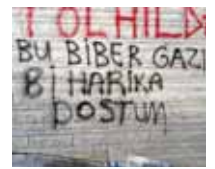 T OLHILD
BU BİBER GAZI
Bİ HARİKA
DOSTUM